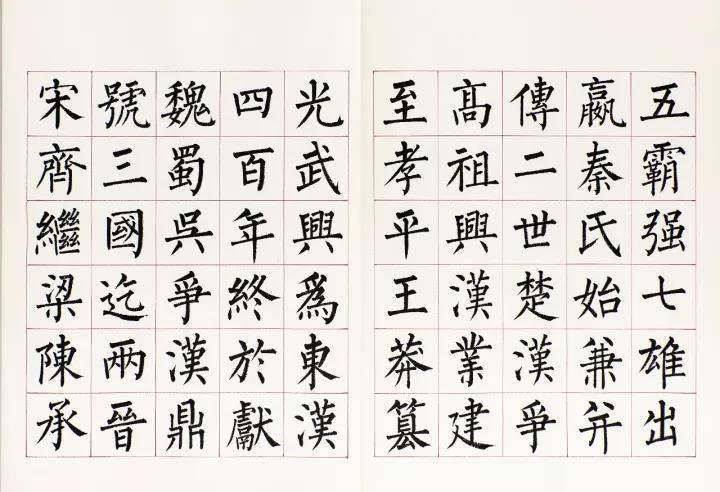 五霸强七雄出
嬴秦氏始兼并
傳二世楚漢爭
髙祖興漢業建
至孝平王莽篡
光武興爲東漢
四百年終於獻
魏蜀吳爭漢鼎
號三國迄兩晉
宋齊繼梁陳承